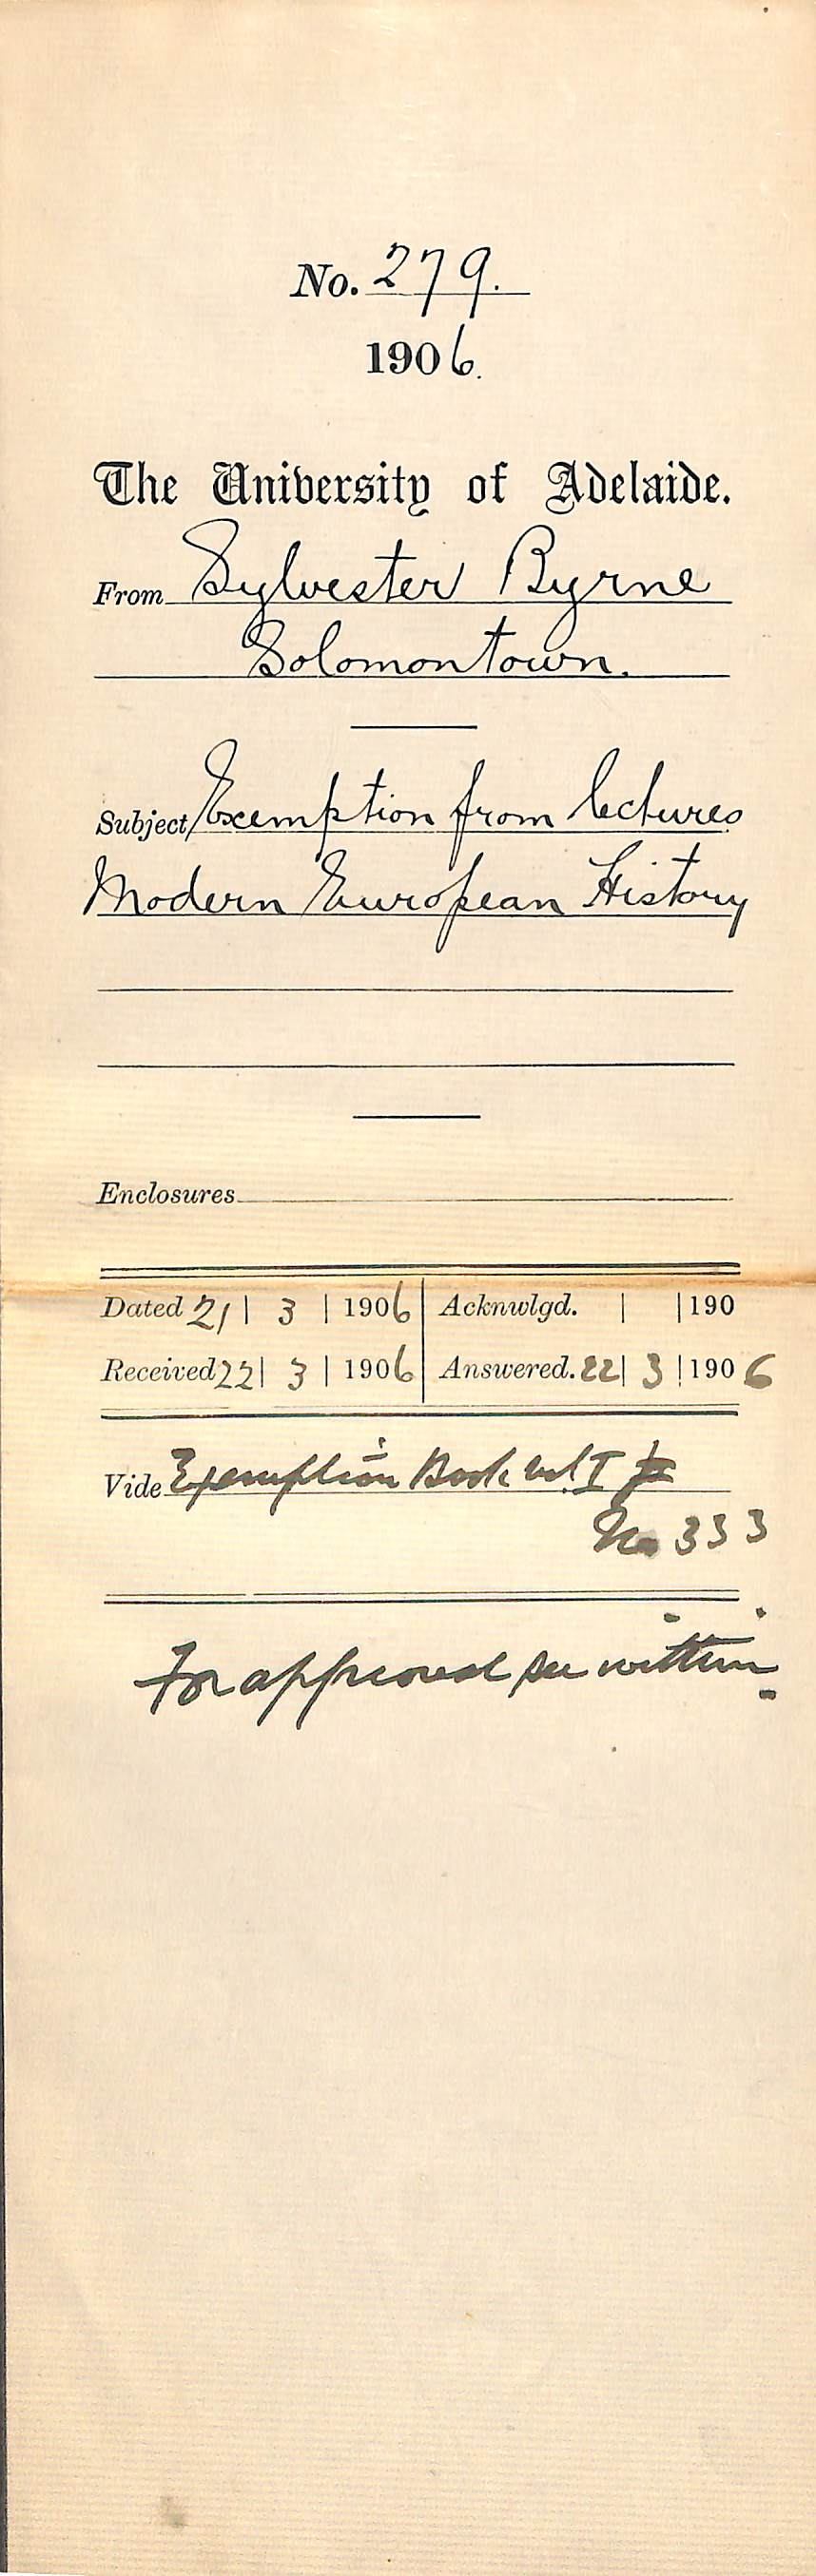 No. 279.
1906.
The University of Adelaide.
From Sylvester Byrne
Solomontown.
Subject Exemption from lectures
Modern European History
Enclosures
Dated 21 | 3 | 1906 | Acknwlgd. | | 190
Received 22 | 3 | 1906 | Answered. 22 | 3 | 1906
Vide Exemption Book vol. I
No 333
For approval see within